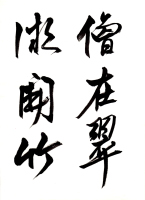 僧在翠
微開竹